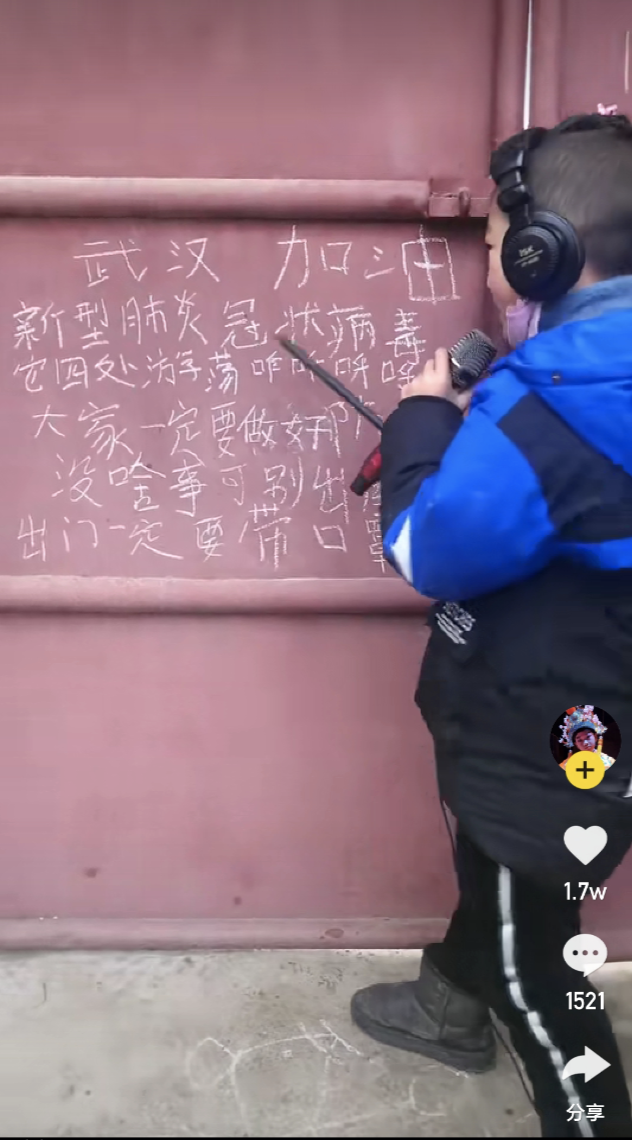 武汉 加油
新型肺炎冠状病毒
它四处游荡咋咋呼
大家一定要做好防
没啥事可别出
出门一定要带口罩
1.7w
1521
分享